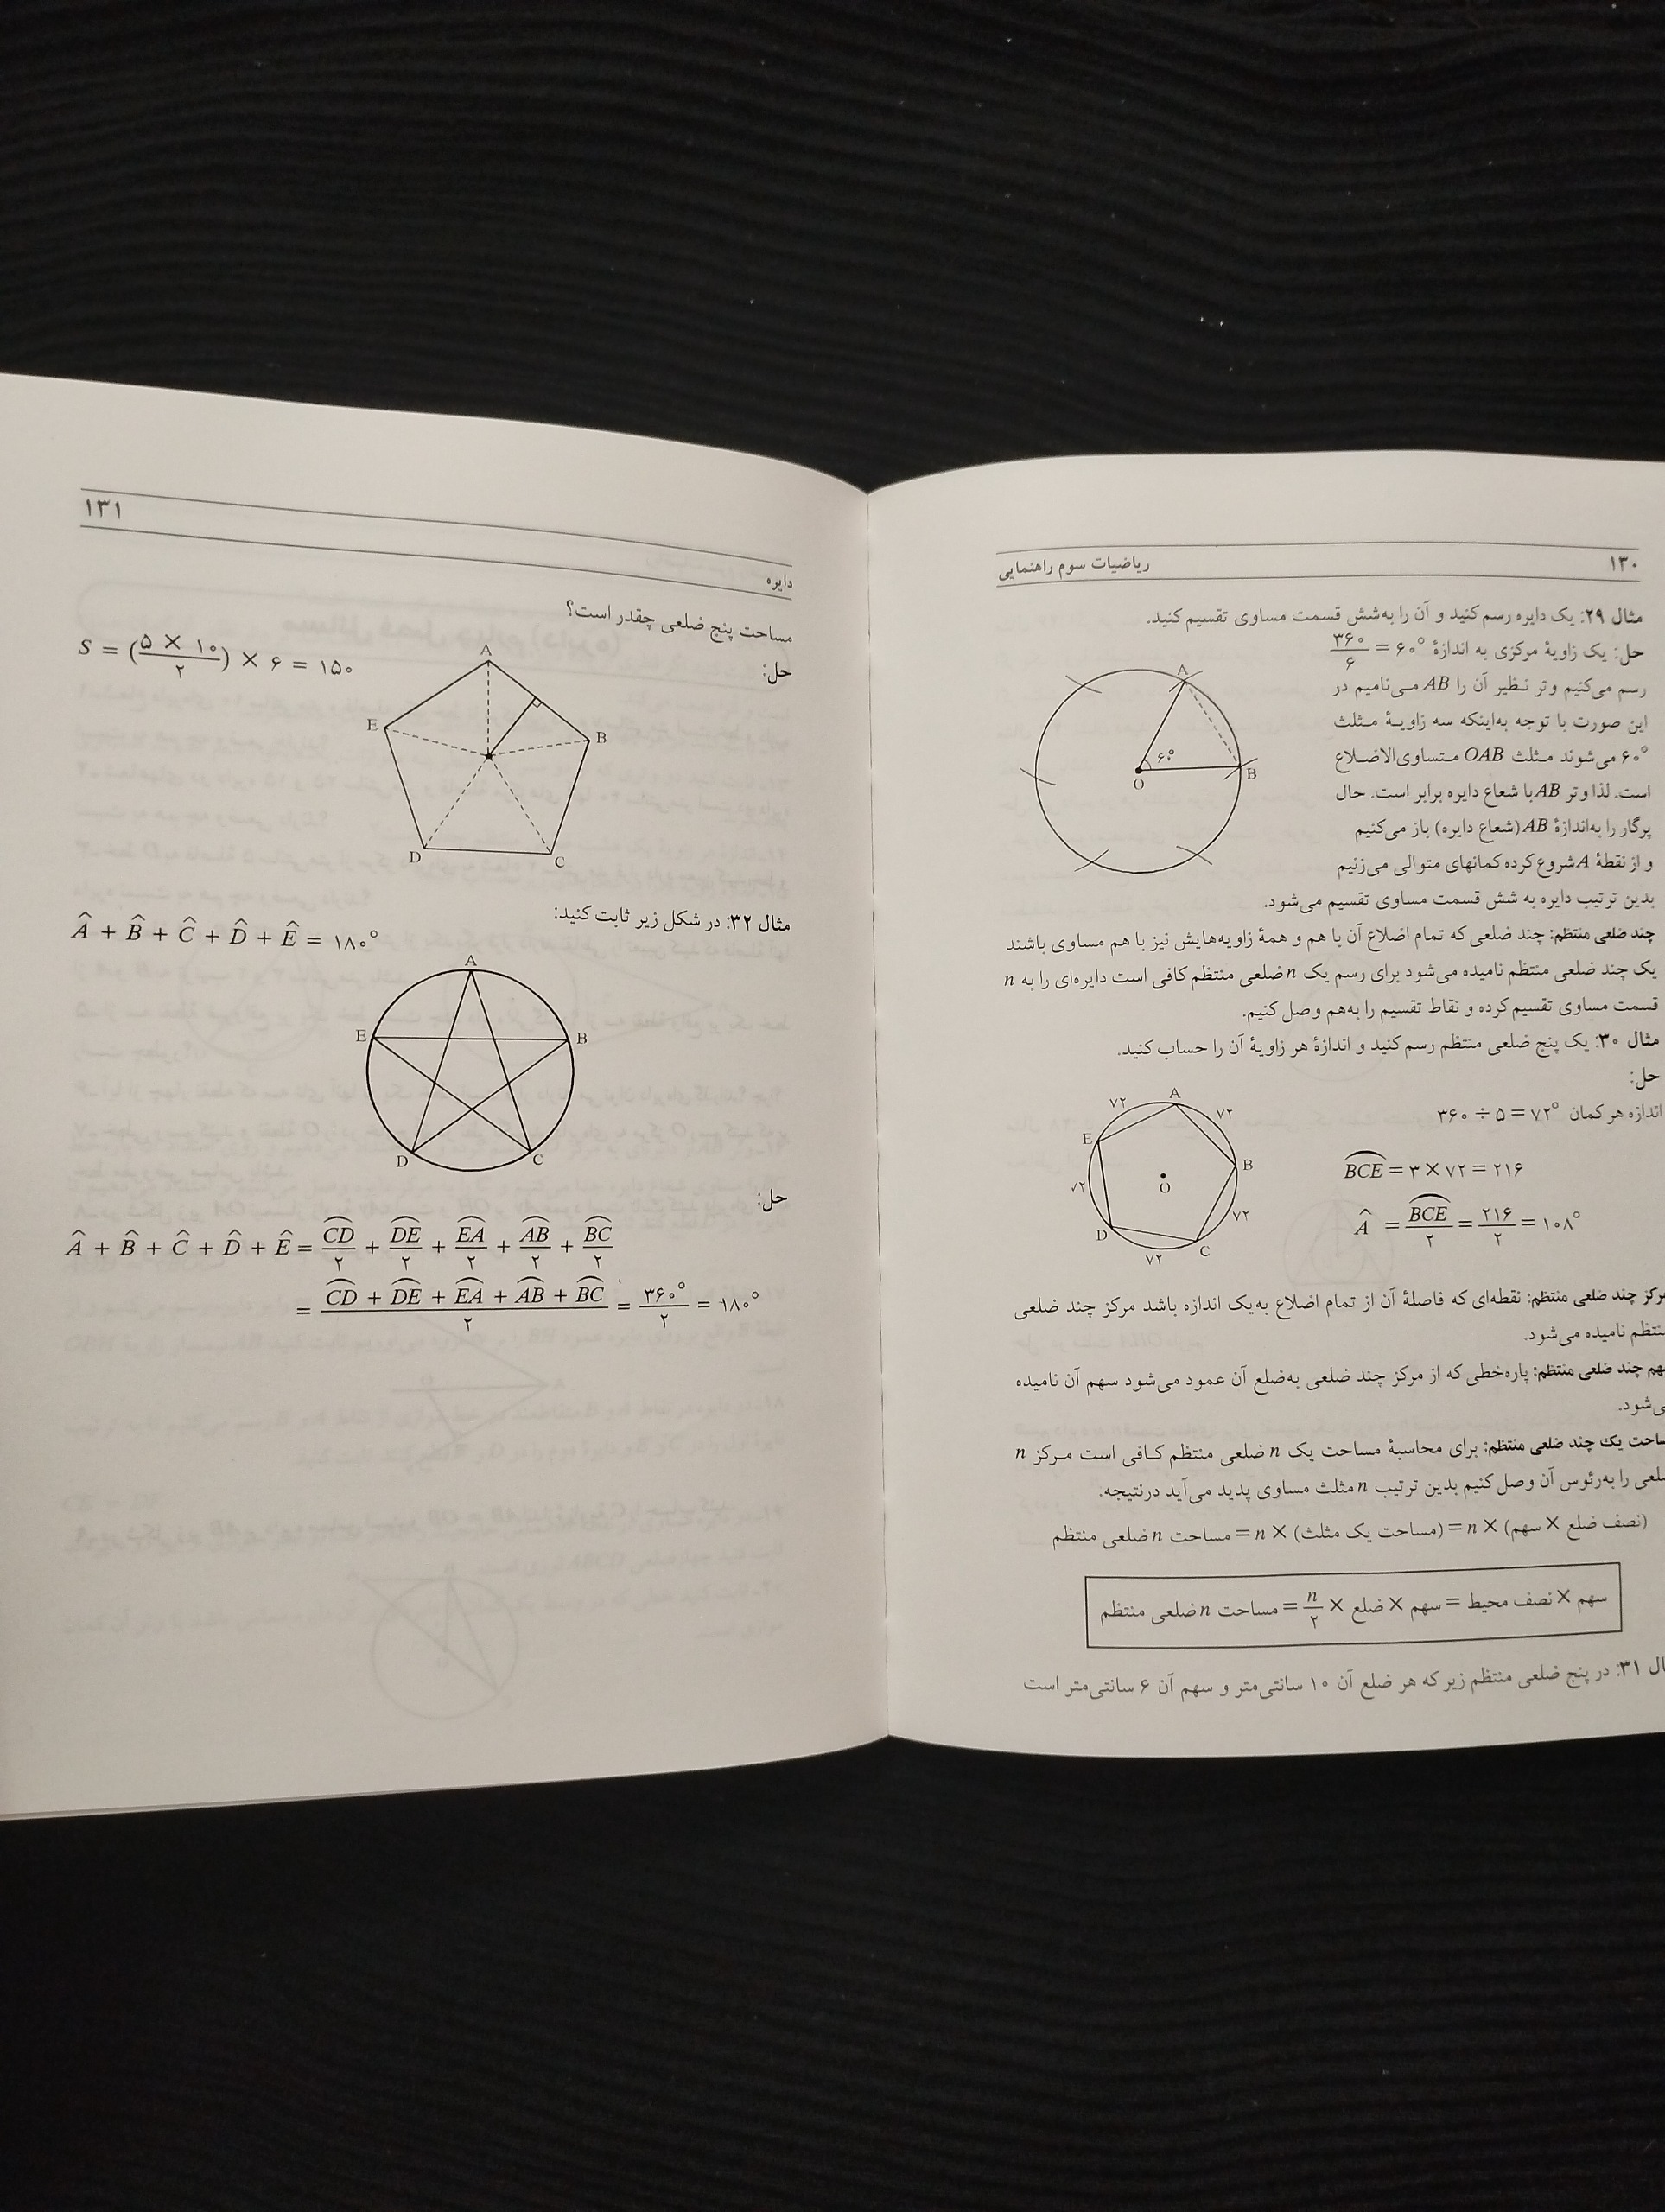 ۱۳۰
ریاضیات سوم راهنمایی
مثال ۲۹: یک دایره رسم کنید و آن را به‌شش قسمت مساوی تقسیم کنید.
حل: یک زاویهٔ مرکزی به اندازهٔ ۳۶۰/۶ = ۶۰°
رسم می‌کنیم وتر نظیر آن را AB می‌نامیم در
این صورت با توجه به‌اینکه سه زاویهٔ مثلث
۶۰° می‌شوند مثلث OAB متساوی‌الاضلاع
است. لذا وتر AB با شعاع دایره برابر است. حال
پرگار را به‌اندازهٔ AB (شعاع دایره) باز می‌کنیم
و از نقطهٔ A شروع کرده کمانهای متوالی می‌زنیم
بدین ترتیب دایره به شش قسمت مساوی تقسیم می‌شود.
A
۶۰°
O
B
چند ضلعی منتظم: چند ضلعی که تمام اضلاع آن با هم و همهٔ زاویه‌هایش نیز با هم مساوی باشند
یک چند ضلعی منتظم نامیده می‌شود برای رسم یک n ضلعی منتظم کافی است دایره‌ای را به n
قسمت مساوی تقسیم کرده و نقاط تقسیم را به‌هم وصل کنیم.
مثال ۳۰: یک پنج ضلعی منتظم رسم کنید و اندازهٔ هر زاویهٔ آن را حساب کنید.
حل:
اندازه هر کمان ۳۶۰ ÷ ۵ = ۷۲°
BCE = ۳ × ۷۲ = ۲۱۶
Â = BCE/۲ = ۲۱۶/۲ = ۱۰۸°
A
۷۲
۷۲
E
B
O
۷۲
۷۲
D
C
۷۲
مرکز چند ضلعی منتظم: نقطه‌ای که فاصلهٔ آن از تمام اضلاع به‌یک اندازه باشد مرکز چند ضلعی
منتظم نامیده می‌شود.
سهم چند ضلعی منتظم: پاره‌خطی که از مرکز چند ضلعی به‌ضلع آن عمود می‌شود سهم آن نامیده
می‌شود.
مساحت یک چند ضلعی منتظم: برای محاسبهٔ مساحت یک n ضلعی منتظم کافی است مرکز n
ضلعی را به‌رئوس آن وصل کنیم بدین ترتیب n مثلث مساوی پدید می‌آید درنتیجه:
(نصف ضلع × سهم) × n = (مساحت یک مثلث) × n = مساحت n ضلعی منتظم
سهم × نصف محیط = سهم × ضلع × n/۲ = مساحت n ضلعی منتظم
ال ۳۱: در پنج ضلعی منتظم زیر که هر ضلع آن ۱۰ سانتی‌متر و سهم آن ۶ سانتی‌متر است
۱۳۱
دایره
مساحت پنج ضلعی چقدر است؟
حل:
S = (۵ × ۱۰/۲) × ۶ = ۱۵۰
A
E
B
D
C
مثال ۳۲: در شکل زیر ثابت کنید:
Â + B̂ + Ĉ + D̂ + Ê = ۱۸۰°
A
E
B
D
C
حل:
Â + B̂ + Ĉ + D̂ + Ê = CD/۲ + DE/۲ + EA/۲ + AB/۲ + BC/۲
= CD + DE + EA + AB + BC/۲ = ۳۶۰°/۲ = ۱۸۰°